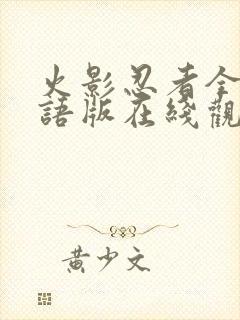 火影忍者全
語版在綫觀
黃少文